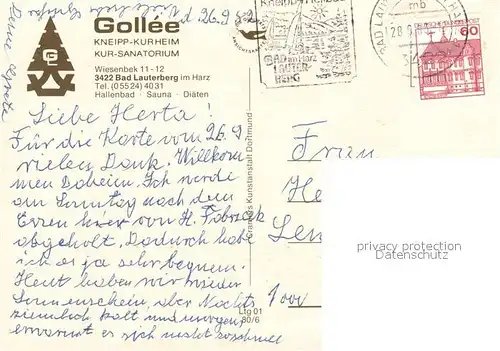 Gollée
KNEIPP-KURHEIM
KUR-SANATORIUM
Wiesenbek 11-12
3422 Bad Lauterberg im Harz
Tel. (05524) 4031
Hallenbad · Sauna · Diäten
d. 26.9.82
Liebe Herta!
Für die Karte vom 26.9
vielen Dank. Willkom
men Daheim. Ich werde
am Sonntag nach dem
Essen hier von H.
abgeholt. Dadurch habe
ich es ja sehr bequem.
Heut haben wir wieder
Sonnenschein, aber Nachts
ziemlich kalt und morgens
erwärmt es sich nicht so schnell
Deine
Graphos Kunstanstalt Dortmund
Ltg 01
80/6
BAD im Harz
LAUTER
BERG
DEUTSCHE BUNDESPOST
60
Frau
He
1000
privacy protection
Datenschutz